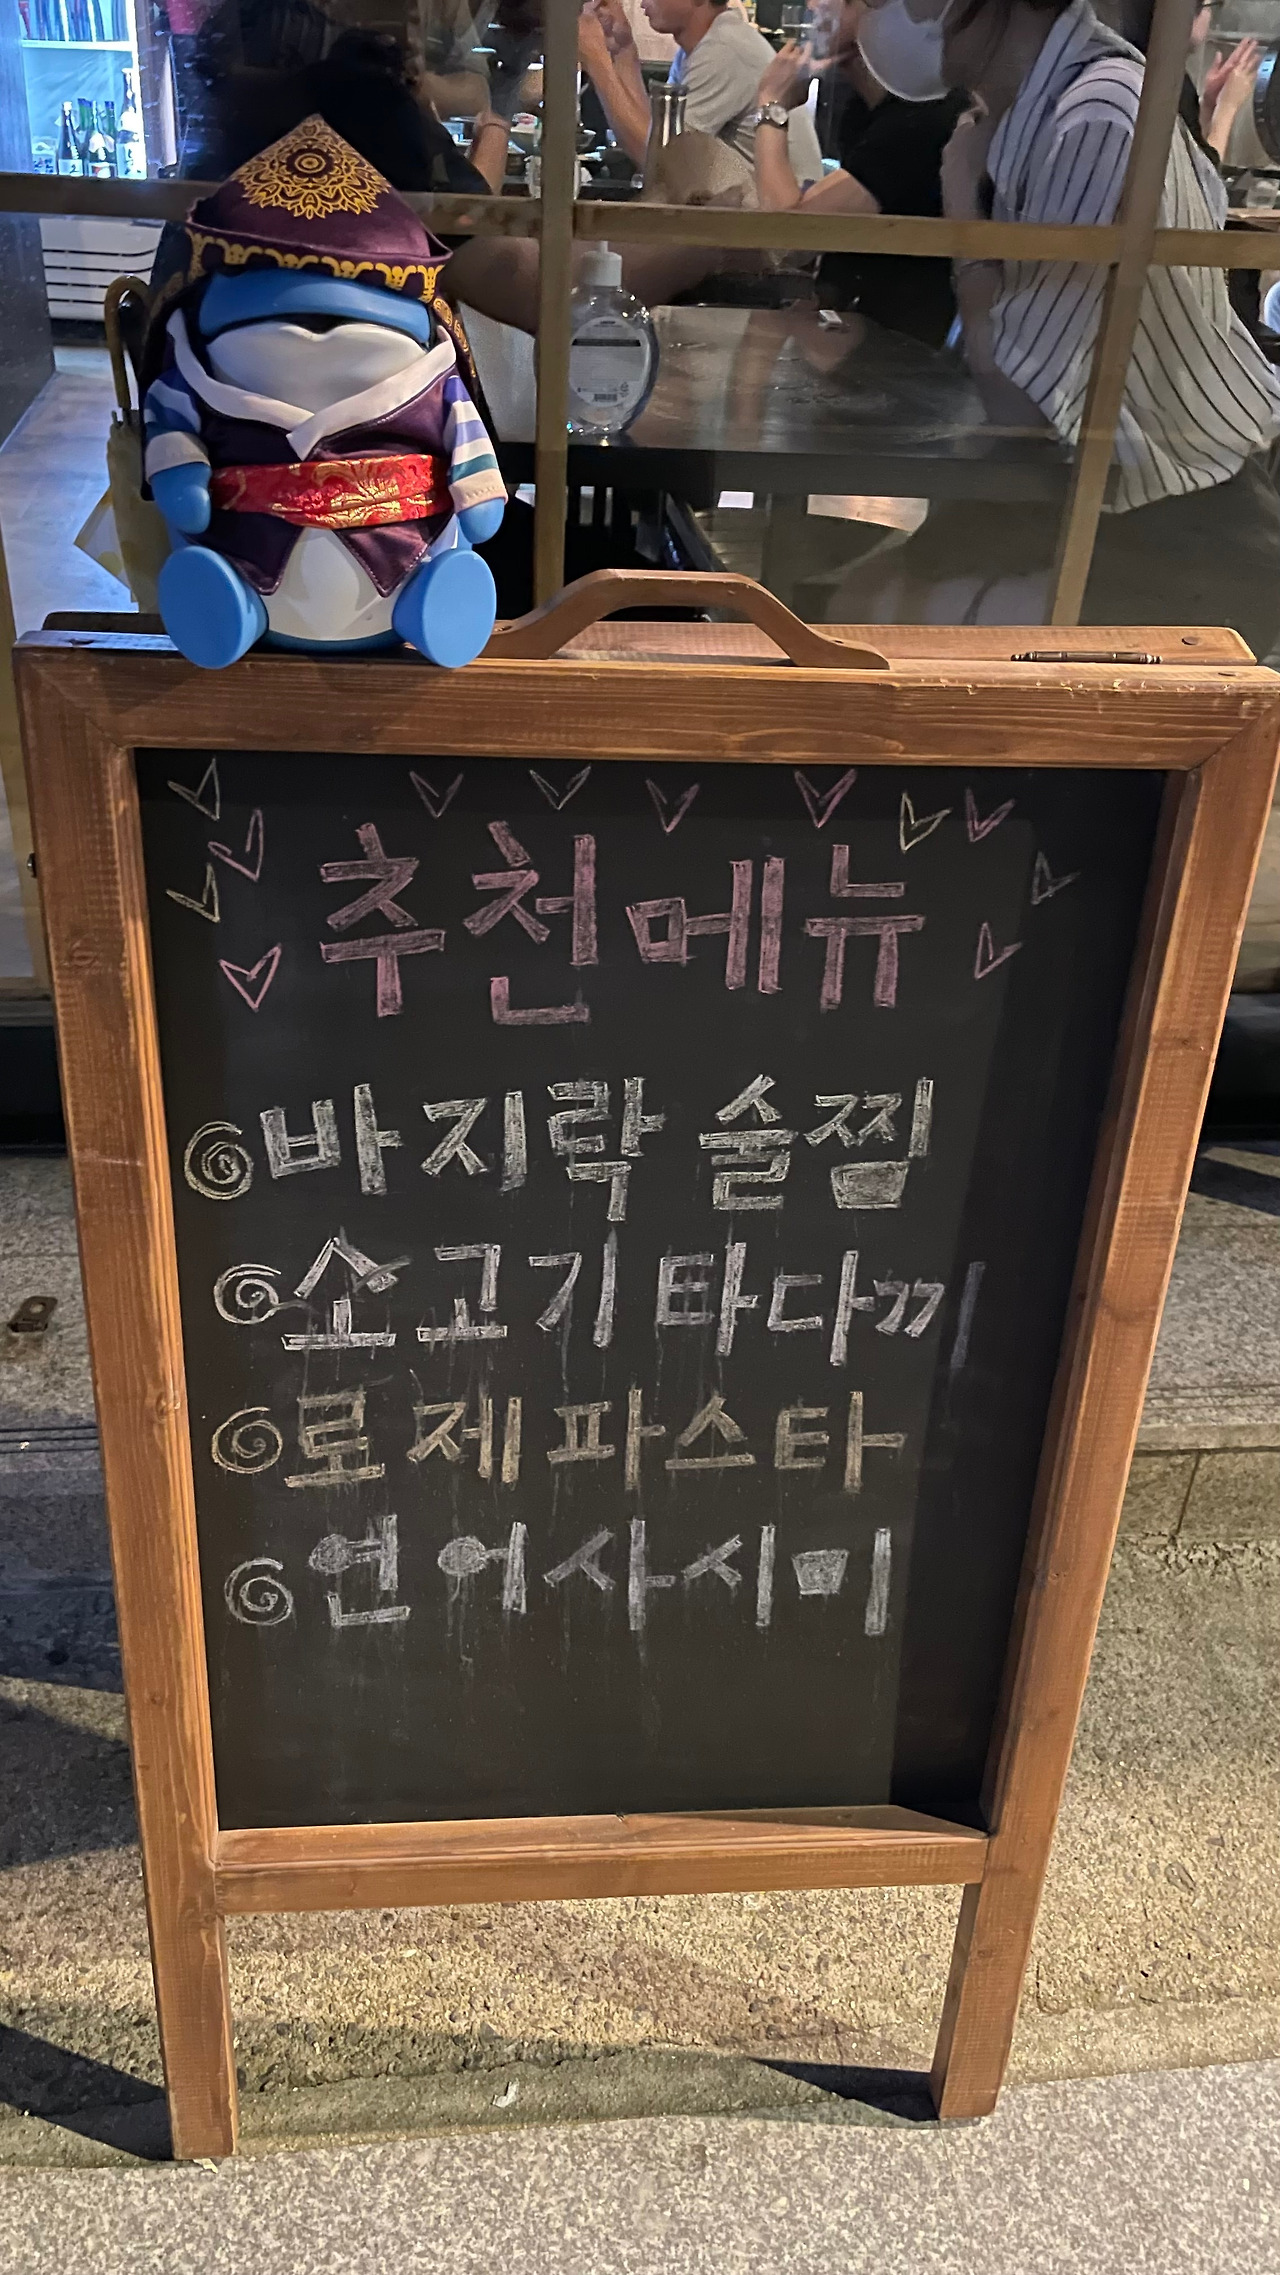 추천메뉴
바지락 술찜
소고기 타다끼
로제파스타
연어사시미